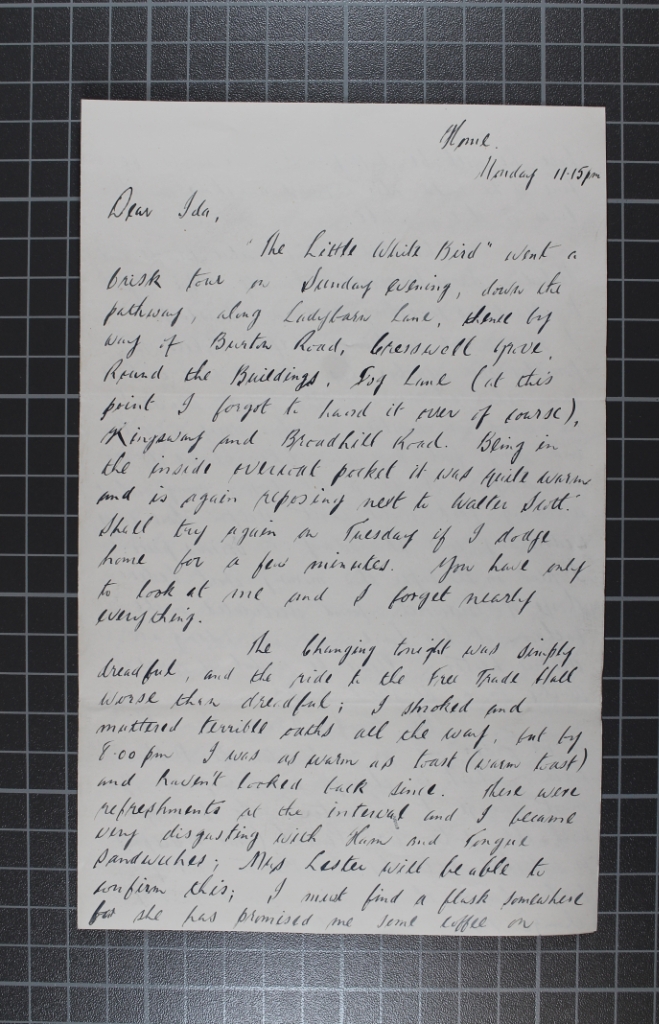 Home.
Monday 11-15pm
Dear Ida,
"The Little White Bird" went a
brisk tour on Sunday evening, down the
pathway, along Ladybarn Lane, thence by
way of Burton Road, Cresswell Grove,
Round the Buildings, Fog Lane (at this
point I forgot to hand it over of course),
Kingsway and Broadhill Road. Being in
the inside overcoat pocket it was quite warm
and is again reposing next to Walter Scott.
Shall try again on Tuesday if I dodge
home for a few minutes. You have only
to look at me and I forget nearly
everything.
The Changing tonight was simply
dreadful, and the ride to the Free Trade Hall
worse than dreadful; I smoked and
muttered terrible oaths all the way, but by
8.00 pm I was as warm as toast (warm toast)
and haven't looked back since. There were
refreshments at the interval and I became
very disgusting with Ham and Tongue
Sandwiches; Lester will be able to
confirm this; I must find a flask somewhere
for she has promised me some coffee on